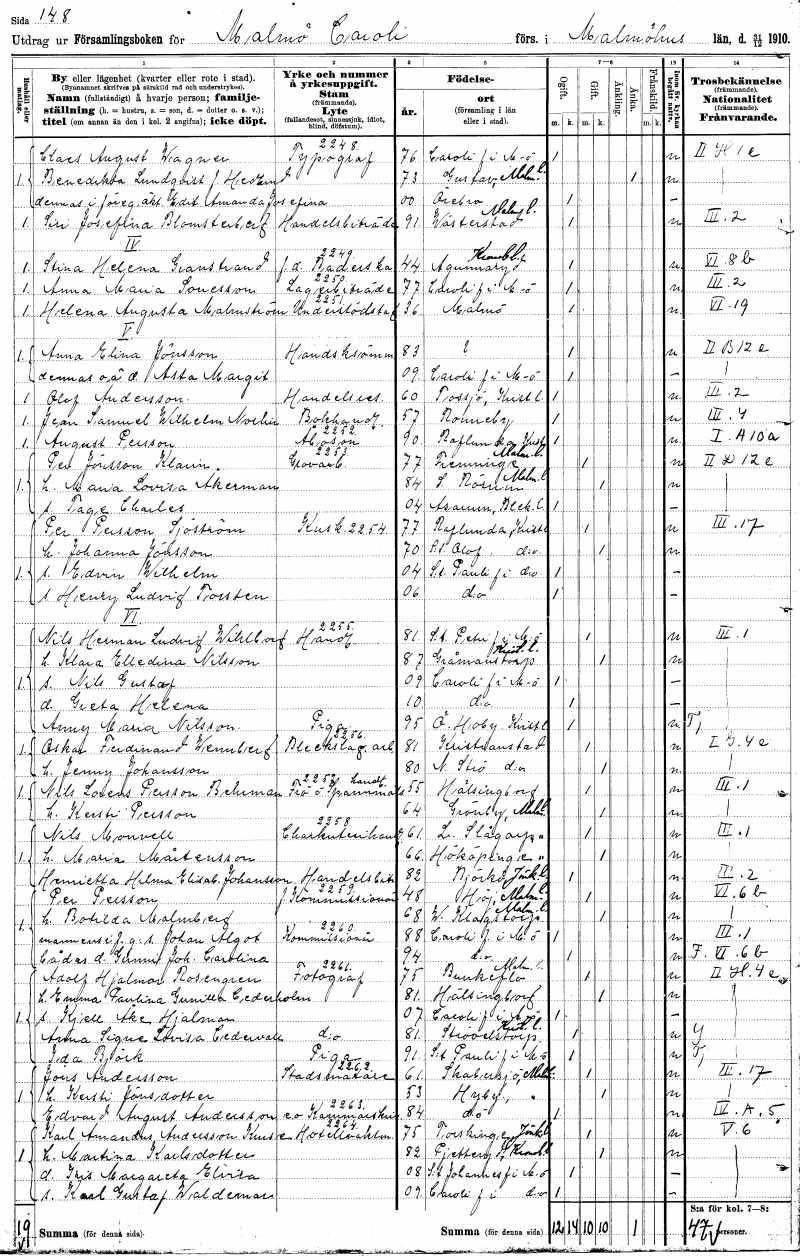 Sida 148
Utdrag ur Församlingsboken för Malmö Caroli förs. i Malmöhus län, d. 31/12 1910.
1 2 3 4 5 6 7–8 13 14
Hushåll eller
By eller lägenhet (kvarter eller rote i stad).
(Byanamnet skrifves på särskild rad och understrykes).
Namn (fullständigt) å hvarje person; familje-
ställning (h. = hustru, s. = son, d. = dotter o. s. v.);
titel (om annan än den i kol. 2 angifna); icke döpt.
Yrke och nummer
å yrkesuppgift.
Stam
(främmande).
Lyte
(fallandesot, sinnessjuk, idiot,
blind, döfstum).
Födelse-
år. ort
(församling i län
eller i stad).
Ogift. Gift. Änkling. Änka. Frånskild.
m. k. m. k. m. k. m. k.
Trosbekännelse
(främmande).
Nationalitet
(främmande).
Frånvarande.
2248
Claes August Wagner Typograf 76 Caroli f i M-ö 1 n II H 1 e
1. Benedikta Lundqvist f Hedlund 73 Gustav, Malm.l. 1 n
dennas i föreg. äkt. Edit Amanda Josefina 00 Örebro 1 –
1. Siri Josefina Blomsterberg Handelsbiträde 91 Västerstad Malm.l. 1 n III.2
IV 2249
1. Stina Helena Granstrand f.d. Baderska 44 Agunnaryd Kronob.l. 1 n VI 8b
2250
1. Anna Maria Sonesson Lagerbiträde 77 Caroli f i M-ö 1 n III.2
2251
1. Helena Augusta Malmström Understödstag 36 Malmö 1 n VI.19
V.
1. Anna Elina Jönsson Handsksömm 83 1 n II B 12 e
dennas o.ä d. Asta Margit 09 Caroli f i M-ö 1 –
1 Olof Andersson Handelsres. 60 Tossjö, Krist l. 1 n III.2
1 Jean Samuel Wilhelm Norlin Bokhand. 57 Ronneby 1 n III.4
2252
1 August Persson 90 Raflunda Krist 1 n I A 10 a
2253
Per Jönsson Klarin. Grovarb. 77 Fremminge Malm.l. 1 n II D 12 e
1. h. Maria Lovisa Åkerman 84 S. Rörum Malm.l. 1 n
s. Tage Charles 04 Asarum, Blek.l. 1 –
Per Persson Sjöström Kusk. 2254. 77 Raflunda, Kristl 1 n III.17
h. Johanna Jönsson 70 St. Olof d:o 1 n
1. s. Edvin Wilhelm 04 S:t Pauli f i d:o 1 –
s Henry Ludvig Torsten 06 d:o 1 –
VI 2255.
Nils Herman Ludvig Wihlborg Handl. 81. S:t Petri f i M-ö 1 n III.1
h. Klara Elledina Nilsson 87 Gråmanstorp Krist.l. 1 n
1. s. Nils Gustaf 09 Caroli f i M-ö 1 –
d. Greta Helena 10 d:o 1 –
Anny Maria Nilsson Piga 95 Ö. Hoby Kristl 1 n T,
2256.
1. Oskar Ferdinand Wennberg Bleckslag.arb 81 Kristianstad 1 n I G.4 e
h. Jenny Johansson 80 N. Strö d:o 1 n
2257 handl
1. Nils Lorens Persson Behrman Frö o Spannmåls 55 Hälsingborg 1 n III.1
h. Kersti Persson 64 Grönby, Malm.l. 1 n
2258
Nils Monvell Charkuterihandl 61. L. Slågarp „ 1 n III.1
1. h. Maria Mårtensson 66. Hököpinge „ 1 n
Henrietta Hilma Elisab. Johansson Handelsbitr 82 Björkö, Jönk.l. 1 n III.2
2259
Per Persson f. Kommissionär 48 Höj, Malm.l. 1 n VI.6 b
1. h. Botilda Malmberg 68 W. Klagstorp Malm.l. 1 n
2260
mannens i f.g. s. Johan Algot Kommissionär 88 Caroli f. i M-ö 1 n III.1
bådas d. Gunni Joh. Carolina 94 d:o 1 n F. VI.6 b
2261.
Adolf Hjalmar Rosengren Fotograf 75 Bunkeflo Malm.l. 1 n II H.4 e
h. Emma Paulina Gunilla Cederholm 81. Hälsingborg 1 n
1 s. Kjell Åke Hjalmar 07 Caroli f i M-ö 1 –
Anna Signe Lovisa Cedervall d:o 81. Krist.l. 1 n Y
Ida Björk Piga 91 S:t Pauli f i M-ö 1 n T,
2262
Jöns Andersson Stadsmätare 61. Skabersjö, Malm. 1 n III.17
1 h. Kersti Jönsdotter 53 Hyby, „ 1 n
2263.
Edvard August Andersson e.o Kammarskriv 84 d:o 1 n IV.A.5
2264.
Karl Amandus Andersson Kruse Hotellvaktm. 75 Torskinge, Jönk.l 1 n V.6
1 h. Martina Karlsdotter 82 Kronob.l 1 n
d. Iris Margareta Elvira 08 S:t Johannes f i M-ö 1 –
s. Karl Gustaf Valdemar 09. Caroli f i d:o 1 –
S:a för kol. 7–8:
19 Summa (för denna sida) Summa (för denna sida) 12 14 10 10 1 47 personer.